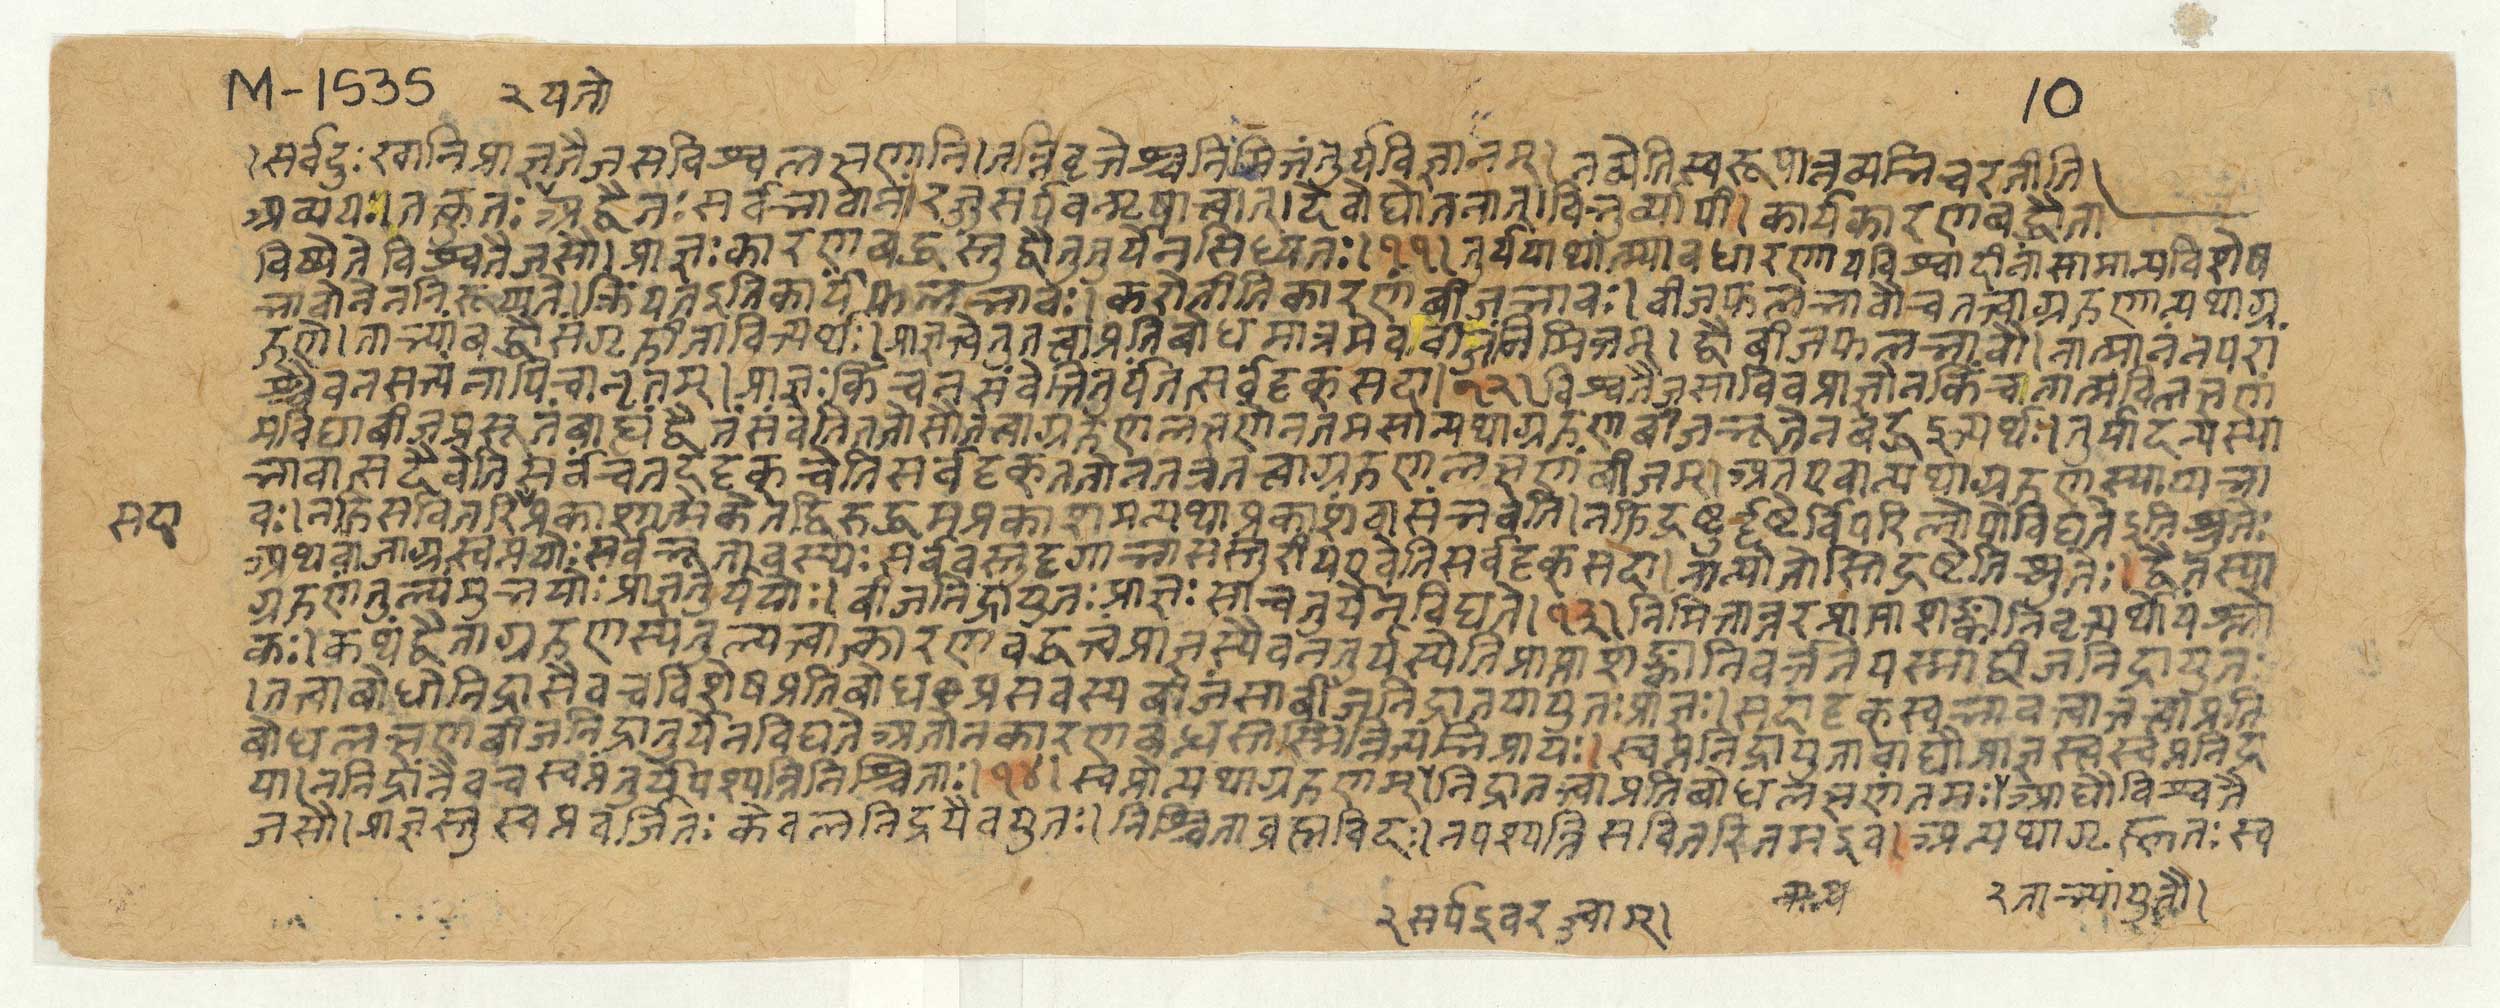 M-1535 २ यतो 10
। सर्वदुःखानि प्राज्ञतैजसविश्वलक्षणानि । तन्निवृत्तेश्च निमित्तं तुर्यविज्ञानम् । नव्येति स्वरूपान्नव्यभिचरतीति
अव्ययः । तत्कुतः अद्वैतः सर्वभावानां रज्जुसर्पवन्मृषात्वात् । देवो द्योतनात् । विभुर्व्यापी । कार्यकारणबद्धौ ता
विष्येते विश्वतैजसौ । प्राज्ञः कारणबद्धस्तु द्वौ तु तुर्ये न सिध्यतः । ११ । तुर्ययाथात्म्यावधारणाय विश्वादीनां सामान्यविशेष
भावोनेन निरूप्यते । क्रियत इति कार्यं फलभावः । करोतीति कारणं बीजभावः । बीजफलभावौ च तत्त्वाग्रहणान्यथाग्र
हणे । ताभ्यां बद्धौ संगृहीतावित्यर्थः । प्राज्ञत्त्वे तु तत्त्वाप्रतिबोधमात्रमेव बीजं निमित्तम् । द्वौ बीजफलभावौ । नात्मानं न परां
श्चैव न सत्यं नापि चानृतम् । प्राज्ञः किं च न संवेत्ति तुर्यं तत्सर्वदृक् सदा । १२ । विश्वतैजसाविव प्राज्ञो न किं च नात्मविलक्षणं
मविद्याबीजप्रसूतं बाह्यं द्वैतं संवेति ततोसौ तत्त्वाग्रहणलक्षणेन तमसान्यथाग्रहणबीजभूतेन बद्ध इत्यर्थः । तुर्यादन्यस्या
भावात् सदैवेति सर्वं च तद्दृक् चेति सर्वदृक् ततो न तत्र तत्त्वाग्रहणलक्षणं बीजम् । अत एवान्यथाग्रहणस्याप्यभा
सदा
वः । न हि सवितरि प्रकाशात्मके तद्विरुद्धमप्रकाशमन्यथाप्रकाशं वा संभवति । न हि द्रष्टुर्दृष्टेर्विपरिलोपो विद्यते इति श्रुतेः
अथवा जाग्रत्स्वप्नयोः सर्वभूतावस्थः सर्ववस्तुदृगाभासस्तुरीय एवेति सर्वदृक् सदा । नान्योतोस्ति द्रष्टेति श्रुतेः । द्वैतस्या
ग्रहणं तुल्यमुभयोः प्राज्ञतुर्ययोः । बीजनिद्रायुतः प्राज्ञः सा च तुर्ये न विद्यते । १३ । निमित्तान्तरप्राप्ताशङ्कानिवृत्यर्थोयं श्लो
कः । कथं द्वैताग्रहणस्य तुल्यत्वात्कारणबद्धत्त्वं प्राज्ञस्यैव न तुर्यस्येति प्राप्ताशङ्का निवर्त्तते यस्माद्बीजनिद्रायुतः
। तत्त्वाबोधो निद्रा सैव च विशेषप्रतिबोधप्रसवस्य बीजं सा बीजनिद्रा तया युतः प्राज्ञः । सदा दृक्स्वभावत्वात्तत्त्वाप्रति
बोधलक्षणबीजनिद्रा तुर्ये न विद्यते अतो न कारणबन्धस्तस्मिन्नित्यभिप्रायः । स्वप्ननिद्रायुतावाद्यौ प्राज्ञस्त्वस्वप्ननिद्र
या । न निद्रां नैव च स्वप्नं तुर्ये पश्यन्ति निश्चिताः । १४ । स्वप्नोन्यथाग्रहणम् । निद्रा तत्त्वाप्रतिबोधलक्षणं तमः । आद्यौ विश्वतै
जसौ । प्राज्ञस्तु स्वप्नवर्जितः केवलनिद्रयैव युतः । निश्चिता ब्रह्मविदः । न पश्यन्ति सवितरि तम इव । अन्यथा गृह्णतः स्व
२ सर्प इव रज्ज्वाम् । २ ताभ्यां युतौ ।